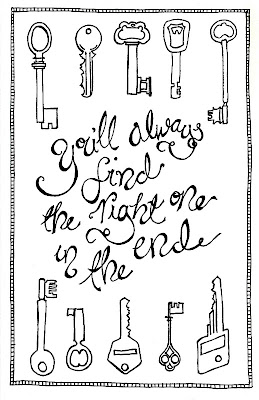 You'll always
find
the right one
in the end